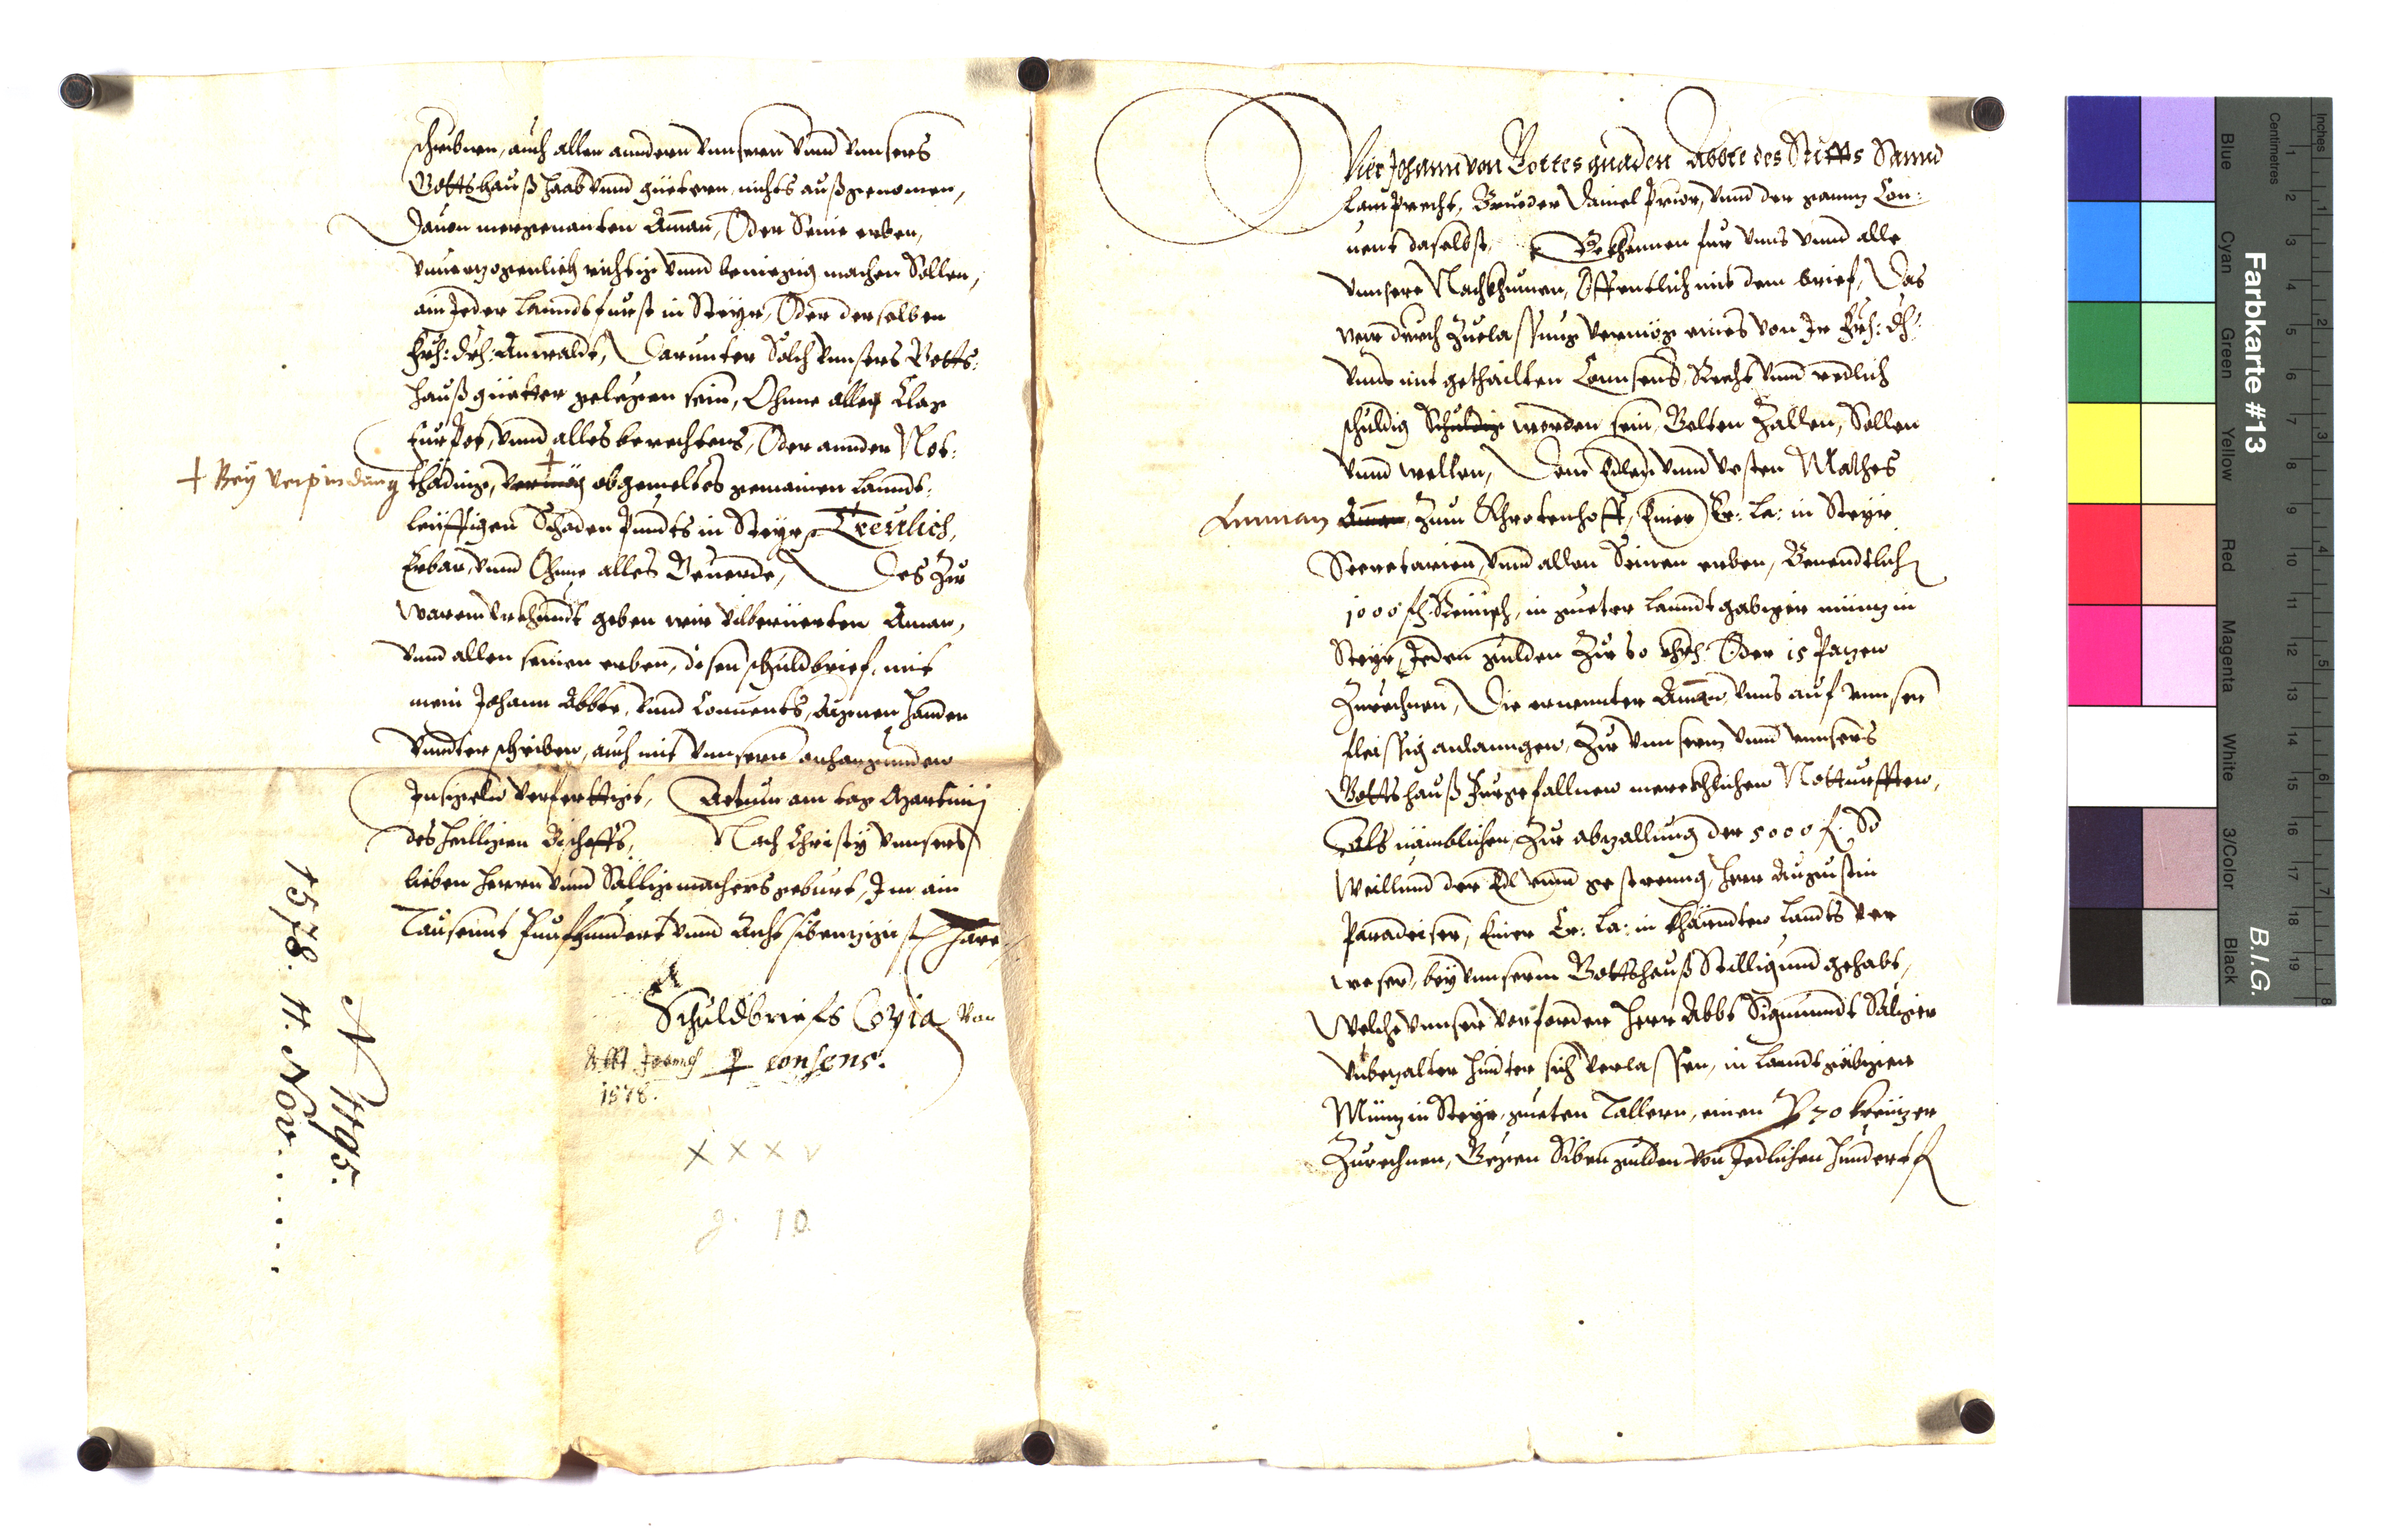 schribnen, auch allen anndern unnseren unnd unnsers
Gottshauß haab unnd güetern, nichts außgenomen,
Davon mergenanten Aman, Oder Seine erben,
unverzogenlich richtig unnd beniegig machen Sollen,
ain Jeder Lanndsfürst in Steyr, Oder derselben
Frh: drh: Anwaldt, Darunter Solch unnsers Gotts:
hauß güetter gelegen sein, Ohne alle Clag
furpot, unnd alles berechtens, Oder annder Not:
+ Bey verpindung
thäding, vermög obgemeltes gemainen Lannds:
leüffigen Schaden Pundts in Steyr, Treulich,
Erbar, unnd Ohne alles Geuerde, Des Zu
warem urkhundt geben wir vilberüerten Aman,
unnd allen seinen erben, disen schuldbrief, mit
mein Johann Abbte, unnd Connents, aignen handen
unndterschriben, auch mit unnsern anhangunden
Insigeln verferttigt, Actum am tag Martinij
des heilligen Bischoffs, Nach Christy unnsers
lieben herrn unnd Saligmachers geburt, Im ain
Tausennt Funfhundert unnd Acht sibenzigist Jare
Schuldbriefs Copia von
Abbt Joannes consens.
1578.
XXXV
10
N 1195.
1578. 11. Nov.......
Wier Johann von Gottes gnaden Abbte des Stiffts Sannd
Lamprecht, Brueder Daniel Prior, unnd der gannz Con:
uent daselbst, Bekhennen fur unns unnd alle
unnsere Nachkhumen, Offentlich mit dem brief, Das
wir durch Zuelassung vermög eines von Ir Frh: dh:
unns mit gethailten Connsens, Recht unnd redlich
schuldig Schuldig worden sein, Gelten Zallen, Sollen
unnd wellen, Dem Edlen unnd Vesten Mathes
Amman Aman, Zum Khrotenhoff, Einer Er: La: in Steyr
Secretarien, unnd allen Seinen erben, Benendtlich
1000 fl. Reinisch, in gueter lanndtgabiger münz in
Steyr, Jeden gulden Zu 60 khr. Oder 15 Pazen
Zurechnen, Die ernennter Aman, unns auf unnser
fleissig anlanngen, Zu unnserm unnd unnsers
Gottshauß Furgefallnen merckhlichen Notturfften,
Als nämblichen, Zu abzallung der 5000 f. So
Weillund der Edl unnd gestreng, Herr Augustin
Paradeiser, Einer Er: La: in Khärndten landts ver
weser, bey unnserm Gottshauß Stilligund gehabt,
Welche unnser vorforder Herr Abbt Sigmundt Saliger
unbezalter hinder sich verlassen, in lanndtgäbiger
Münz in Steyr, gueten Tallern, einen P 70 kreüzer
Zurechnen, Gegen Siben gulden von Jedlichen hundert f